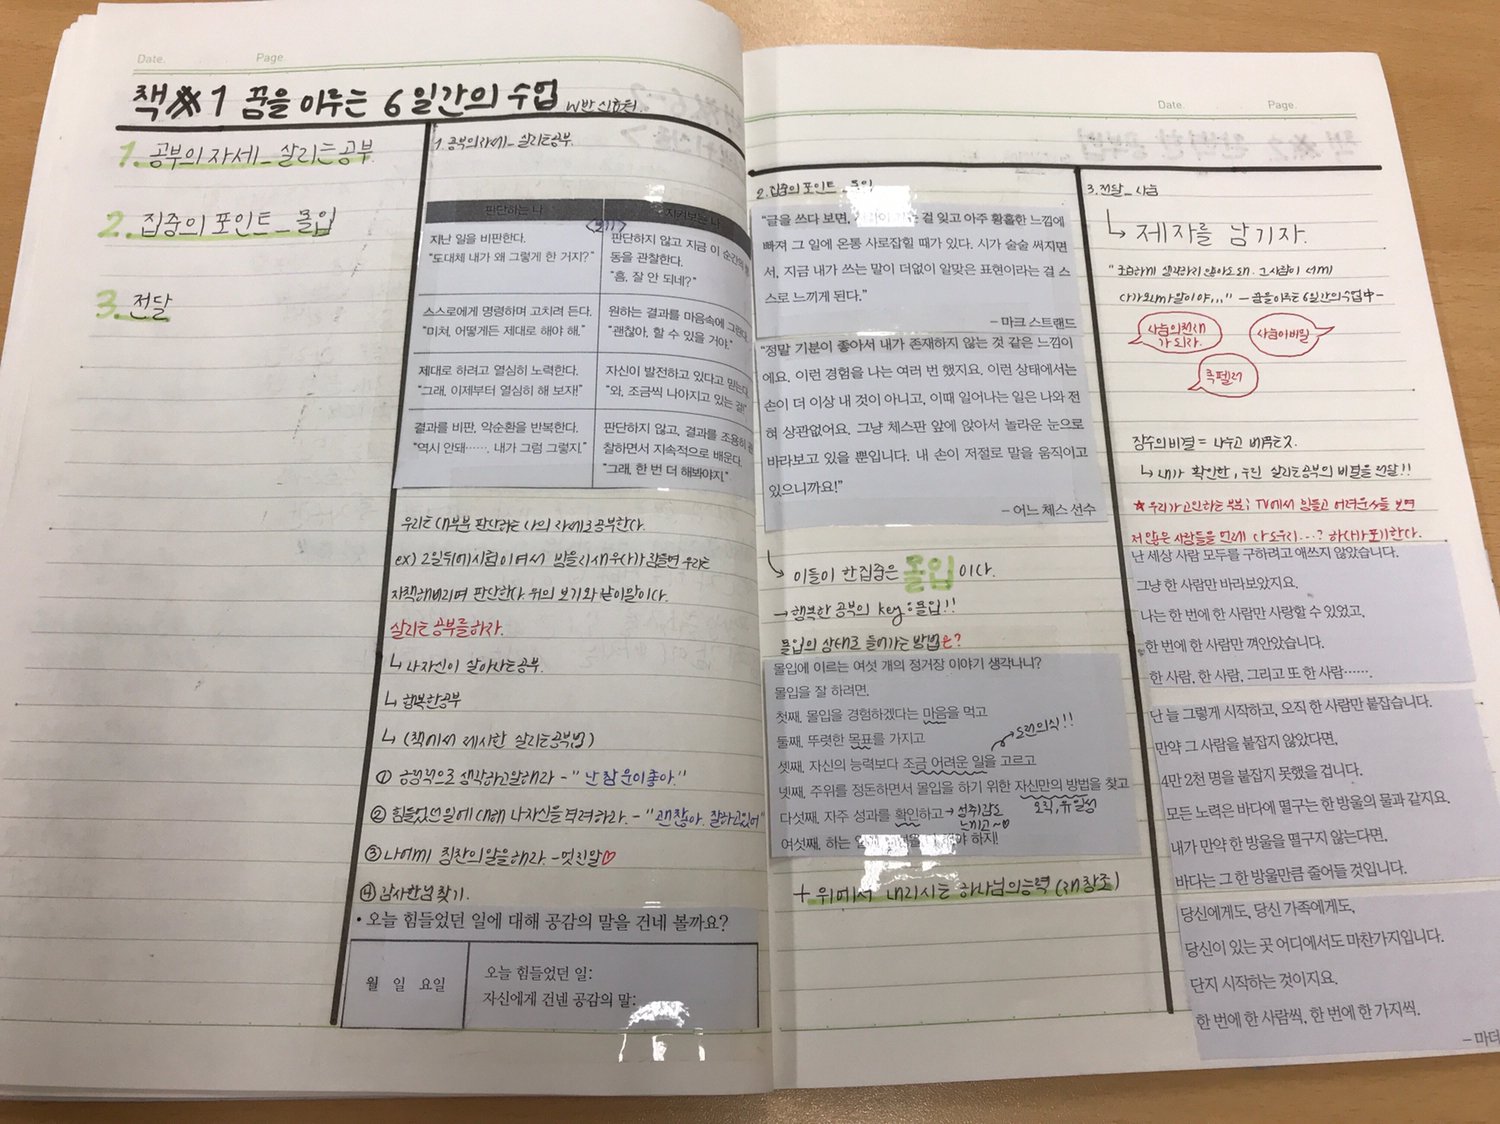 Date.
Page.
책 #1 꿈을 이루는 6일간의 수업 W반
1. 공부의 자세_ 살리는공부
2. 집중의 포인트_몰입
3. 전달
1. 공부의자세_ 살리는공부.
판단하는 나
지켜보는 나
<보기>
지난 일을 비판한다.
"도대체 내가 왜 그렇게 한 거지?"
판단하지 않고 지금 이 순간의
동을 관찰한다.
"흠, 잘 안 되네?"
스스로에게 명령하며 고치려 든다.
"미쳐, 어떻게든 제대로 해야 해."
원하는 결과를 마음속에 그린다.
"괜찮아, 할 수 있을 거야."
제대로 하려고 열심히 노력한다.
"그래, 이제부터 열심히 해 보자!"
자신이 발전하고 있다고 믿는다.
"와, 조금씩 나아지고 있는 걸!"
결과를 비판, 악순환을 반복한다.
"역시 안돼……. 내가 그럼 그렇지."
판단하지 않고, 결과를 조용히 관
찰하면서 지속적으로 배운다.
"그래, 한 번 더 해봐야지."
우리는 대부분 판단하는 나의 자세로 공부한다.
ex) 2일뒤에 시험이여서 밤을 지새우다가 잠들면 우리는
자책해버리며 판단한다. 위의 보기와 같이 말이다.
살리는 공부를하자.
↳ 나자신이 살아나는공부.
↳ 행복한공부
↳ (책에서 제시한 살리는공부법)
① 긍정적으로 생각하고말해라 - "난 참 운이좋아."
② 힘들었던일에 대해 나자신을 격려하라. - "괜찮아. 잘하고있어"
③ 나에게 칭찬의말을해라. - 멋진말♡
④ 감사한점 찾기.
• 오늘 힘들었던 일에 대해 공감의 말을 건네 볼까요?
월 일 요일
오늘 힘들었던 일:
자신에게 건넨 공감의 말:
2. 집중의 포인트_몰입
"글을 쓰다 보면, 걸 잊고 아주 황홀한 느낌에
빠져 그 일에 온통 사로잡힐 때가 있다. 시가 술술 써지면
서, 지금 내가 쓰는 말이 더없이 알맞은 표현이라는 걸 스
스로 느끼게 된다."
– 마크 스트랜드
"정말 기분이 좋아서 내가 존재하지 않는 것 같은 느낌이
에요. 이런 경험을 나는 여러 번 했지요. 이런 상태에서는
손이 더 이상 내 것이 아니고, 이때 일어나는 일은 나와 전
혀 상관없어요. 그냥 체스판 앞에 앉아서 놀라운 눈으로
바라보고 있을 뿐입니다. 내 손이 저절로 말을 움직이고
있으니까요!"
– 어느 체스 선수
↳ 이들이 한 집중은 몰입이다.
→ 행복한 공부의 key : 몰입!!
몰입의 상태로 들어가는 방법은?
몰입에 이르는 여섯 개의 정거장 이야기 생각나니?
몰입을 잘 하려면,
첫째, 몰입을 경험하겠다는 마음을 먹고
둘째, 뚜렷한 목표를 가지고
도전의식!!
셋째, 자신의 능력보다 조금 어려운 일을 고르고
넷째, 주위를 정돈하면서 몰입을 하기 위한 자신만의 방법을 찾고
오직, 유일성
다섯째, 자주 성과를 확인하고 → 성취감도
느끼고~♡
여섯째, 하는 야 하지!
+ 위에서 내리시는 하나님의능력 (재창조)
Date.
Page.
3. 전달_ 나눔
↳ 제자를 남기자.
"조급하게 생각하지 않아도 돼. 그사람이 서서히
다가오게 말이야,,," - 꿈을이루는 6일간의수업中 -
나눔의천재
가 되자.
나눔이비밀
장수의비결 = 나누고 베푸는것.
↳ 내가 확인한, 누린 살리는공부의 비결을 전달!!
난 세상 사람 모두를 구하려고 애쓰지 않았습니다.
그냥 한 사람만 바라보았지요.
나는 한 번에 한 사람만 사랑할 수 있었고,
한 번에 한 사람만 껴안았습니다.
한 사람, 한 사람, 그리고 또 한 사람……
난 늘 그렇게 시작하고, 오직 한 사람만 붙잡습니다.
만약 그 사람을 붙잡지 않았다면,
4만 2천 명을 붙잡지 못했을 겁니다.
모든 노력은 바다에 떨구는 한 방울의 물과 같지요.
내가 만약 한 방울을 떨구지 않는다면,
바다는 그 한 방울만큼 줄어들 것입니다.
당신에게도, 당신 가족에게도,
당신이 있는 곳 어디에서도 마찬가지입니다.
단지 시작하는 것이지요.
한 번에 한 사람씩, 한 번에 한 가지씩.
– 마더